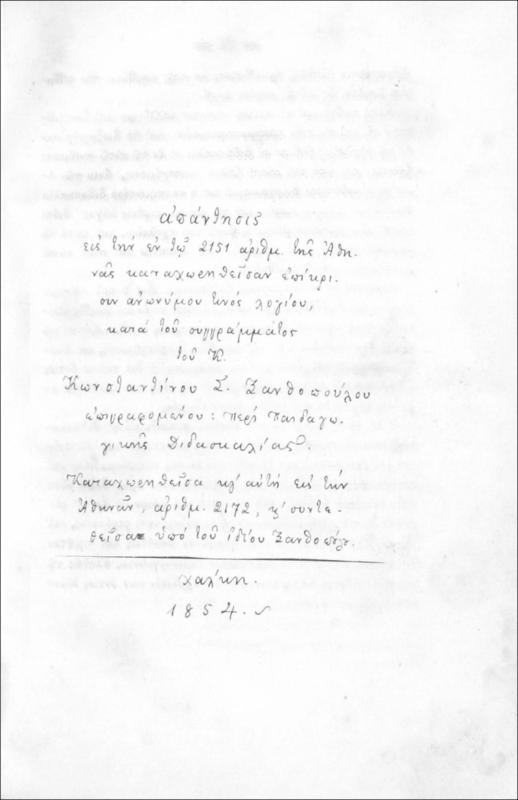 ἀπάνθησις
εἰς τὴν ἐν τῷ 2151 ἀριθμ. τῆς Ἀθη-
νᾶς καταχωρηθεῖσαν ἐπίκρι-
σιν ἀνωνύμου τινὸς λογίου,
κατὰ τοῦ συγγράμματος
τοῦ Κ.
Κωνσταντίνου Σ. Ξανθοπούλου
ἐπιγραφομένου: περὶ παιδαγω-
γικῆς διδασκαλίας.
Καταχωρηθεῖσα κ' αὐτὴ εἰς τὴν
Ἀθηνᾶν, ἀριθμ. 2172, κ' συντε-
θεῖσα ὑπὸ τοῦ ἰδίου Ξανθοπούλ.
Χάλκη.
1854.